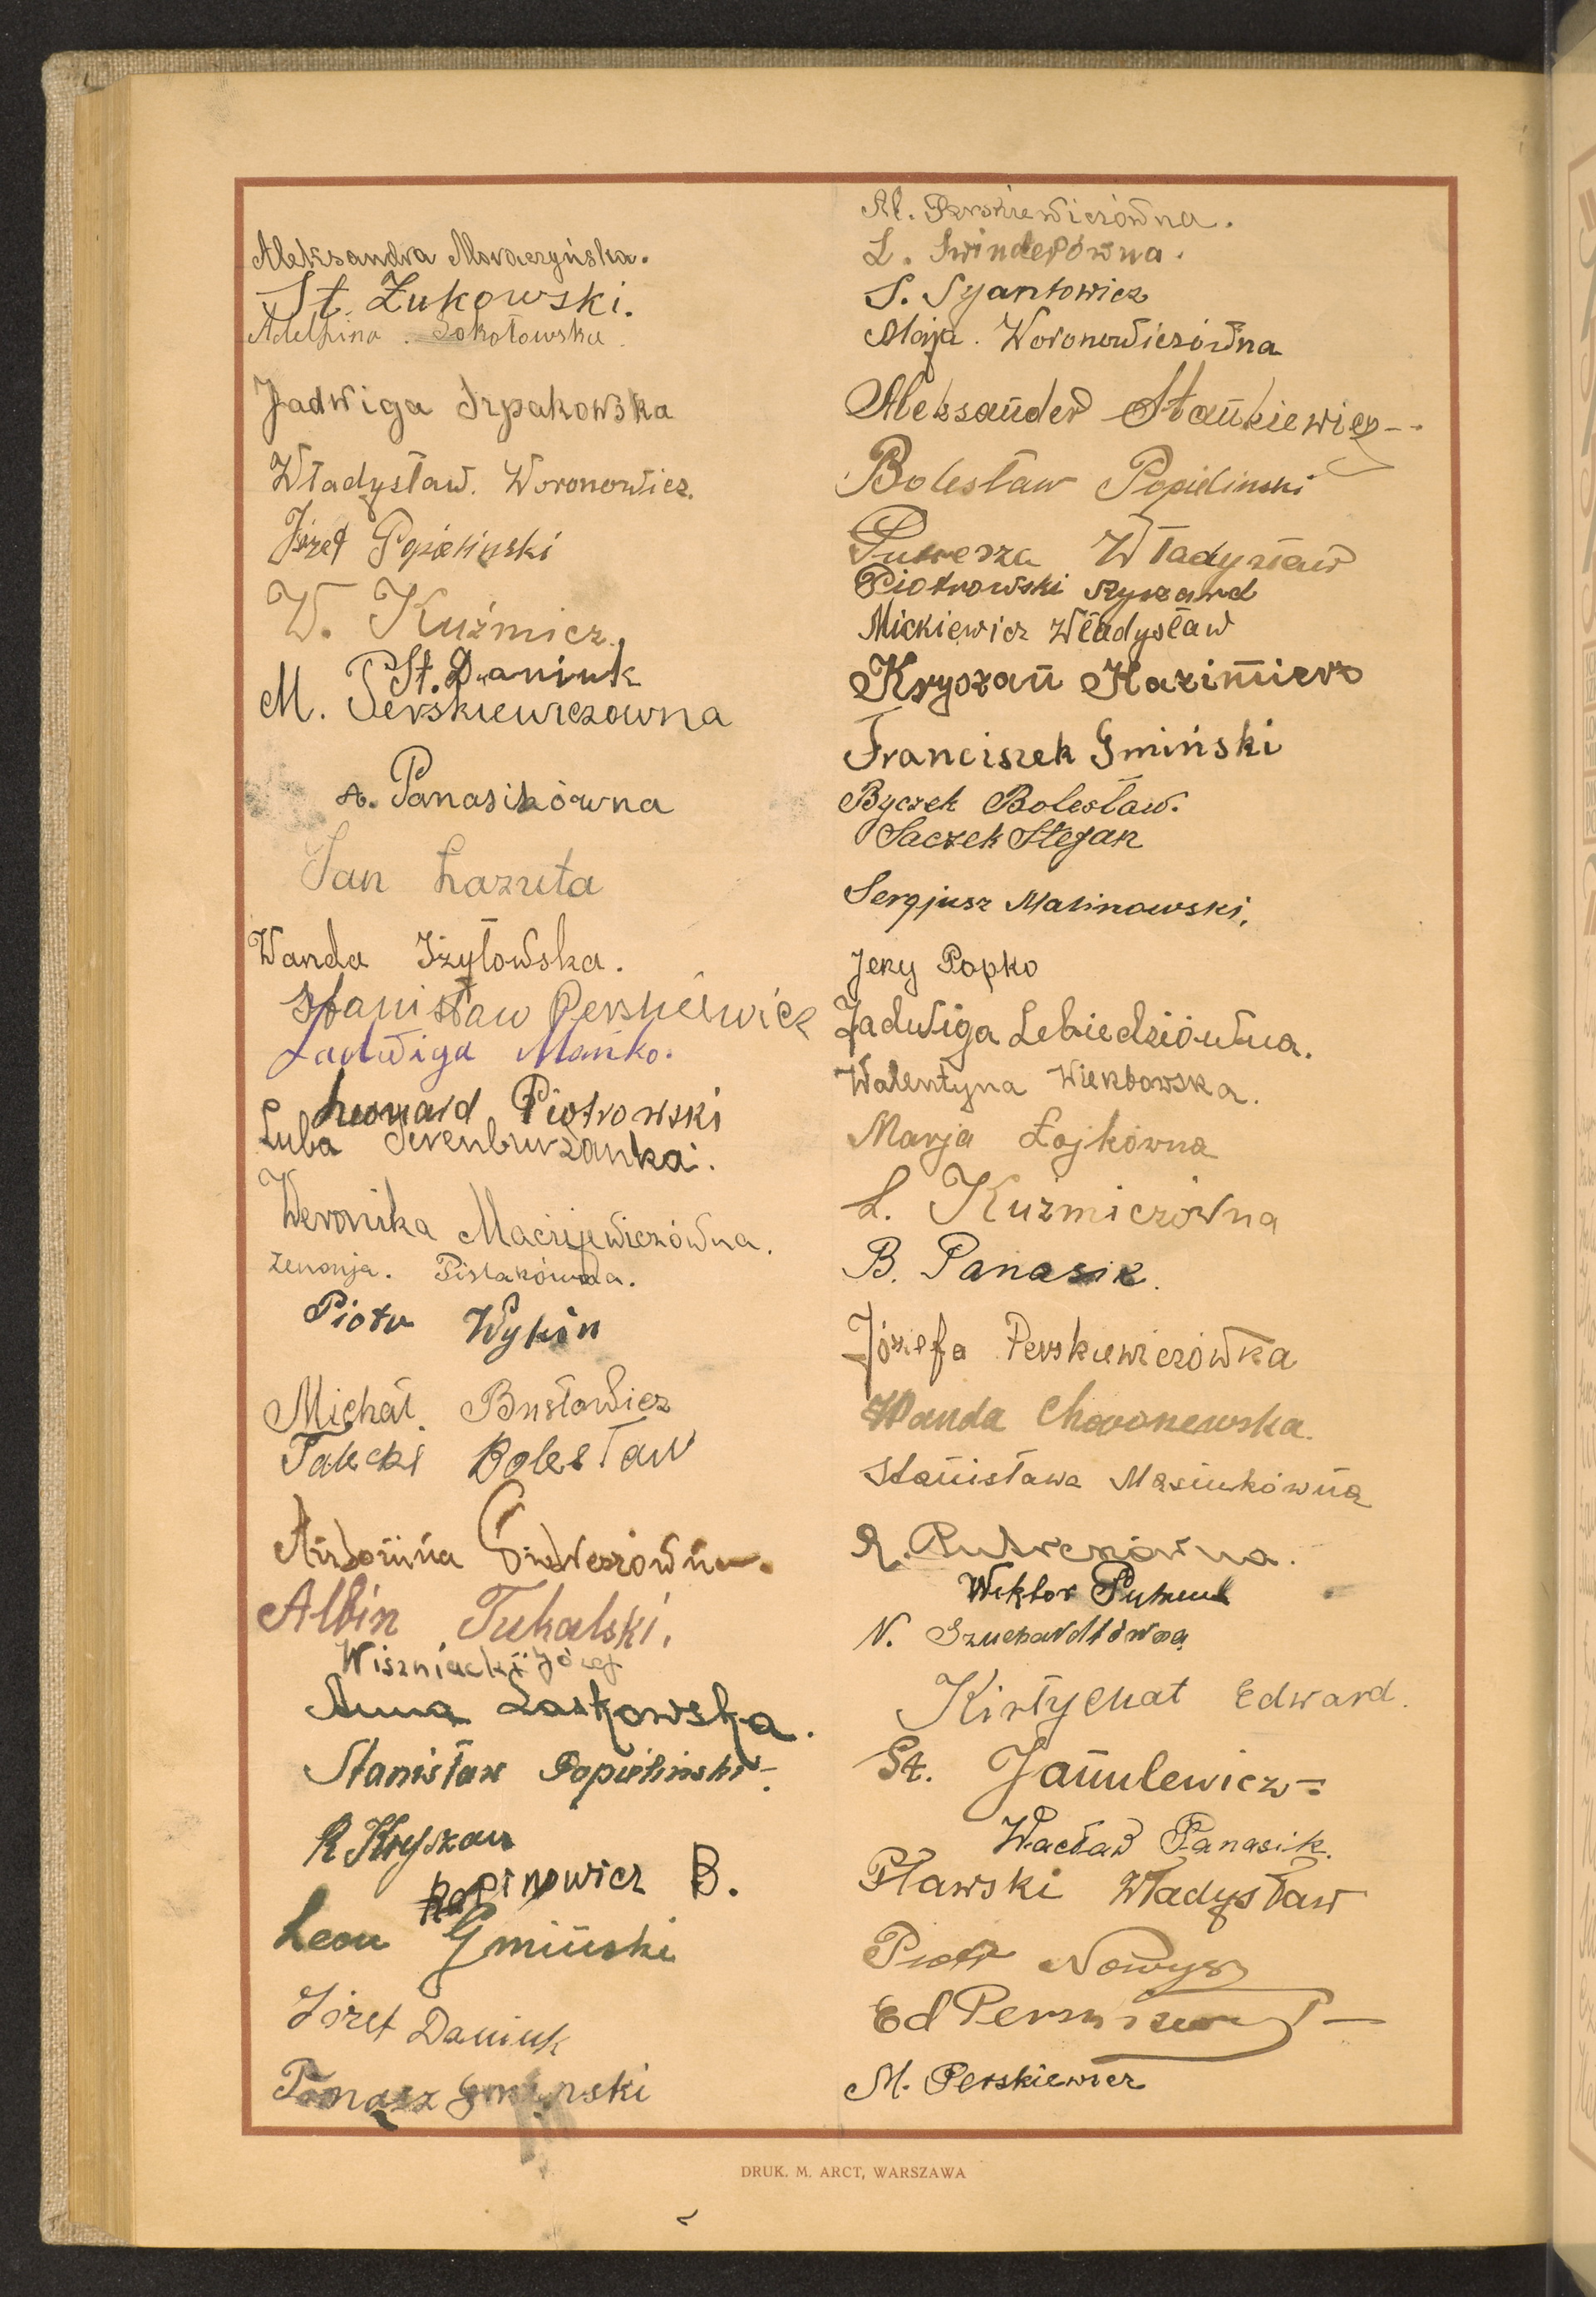 Aleksandra Moraczyńska.
St. Żukowski.
Adelfina . Sokołowska.
Jadwiga Szpakowska
Władysław. Woronowicz.
Józef Popieliński
W. Kuźmicz.
St. Daniuk
M. Perskiewiczowna
A. Panasikówna
Jan Łazuta
Wanda Iżyłowska.
Stanisław Perskiewicz
Jadwiga Mańko.
Leonard Piotrowski
Luba
Weronika Maciejewiczówna.
Zenonja. Pistakówna.
Piotr Wykin
Michał. Busłowicz
Talecki Bolesław
Antonina
Albin Tukalski.
Wiszniacki Józef
Anna Laskowska.
Stanisław Popieliński
R Kryszan
Rapinowicz B.
Leon Gmiński
Józef Daniuk
Tomasz Gminski
Al. Perskiewiczówna.
L. Swinderówna.
S. Syantowicz
Maja. Woronowiczówna
Aleksander Stankiewicz--
Bolesław Popielinski
Władysław
Piotrowski Ryszard
Mickiewicz Władysław
Kryszań Kazimierz
Franciszek Gmiński
Byczek Bolesław.
Saczek Stefan
Sergjusz Malinowski.
Jerzy Popko
Jadwiga Lebiedziówna.
Walentyna Wierzbowska.
Marja Łojkówna
L. Kuźmiczówna
B. Panasik.
Józefa Perskiewiczówka
Wanda Choronewska.
Stanisława Masiukówna
R.
Wiktor
N. Szuchardtówna
Kirtyczuat Edward.
St. Janulewicz
Wacław Panasik.
Pławski Władysław
Piotr Nowysz
Ed
M. Perskiewicz
DRUK. M. ARCT, WARSZAWA